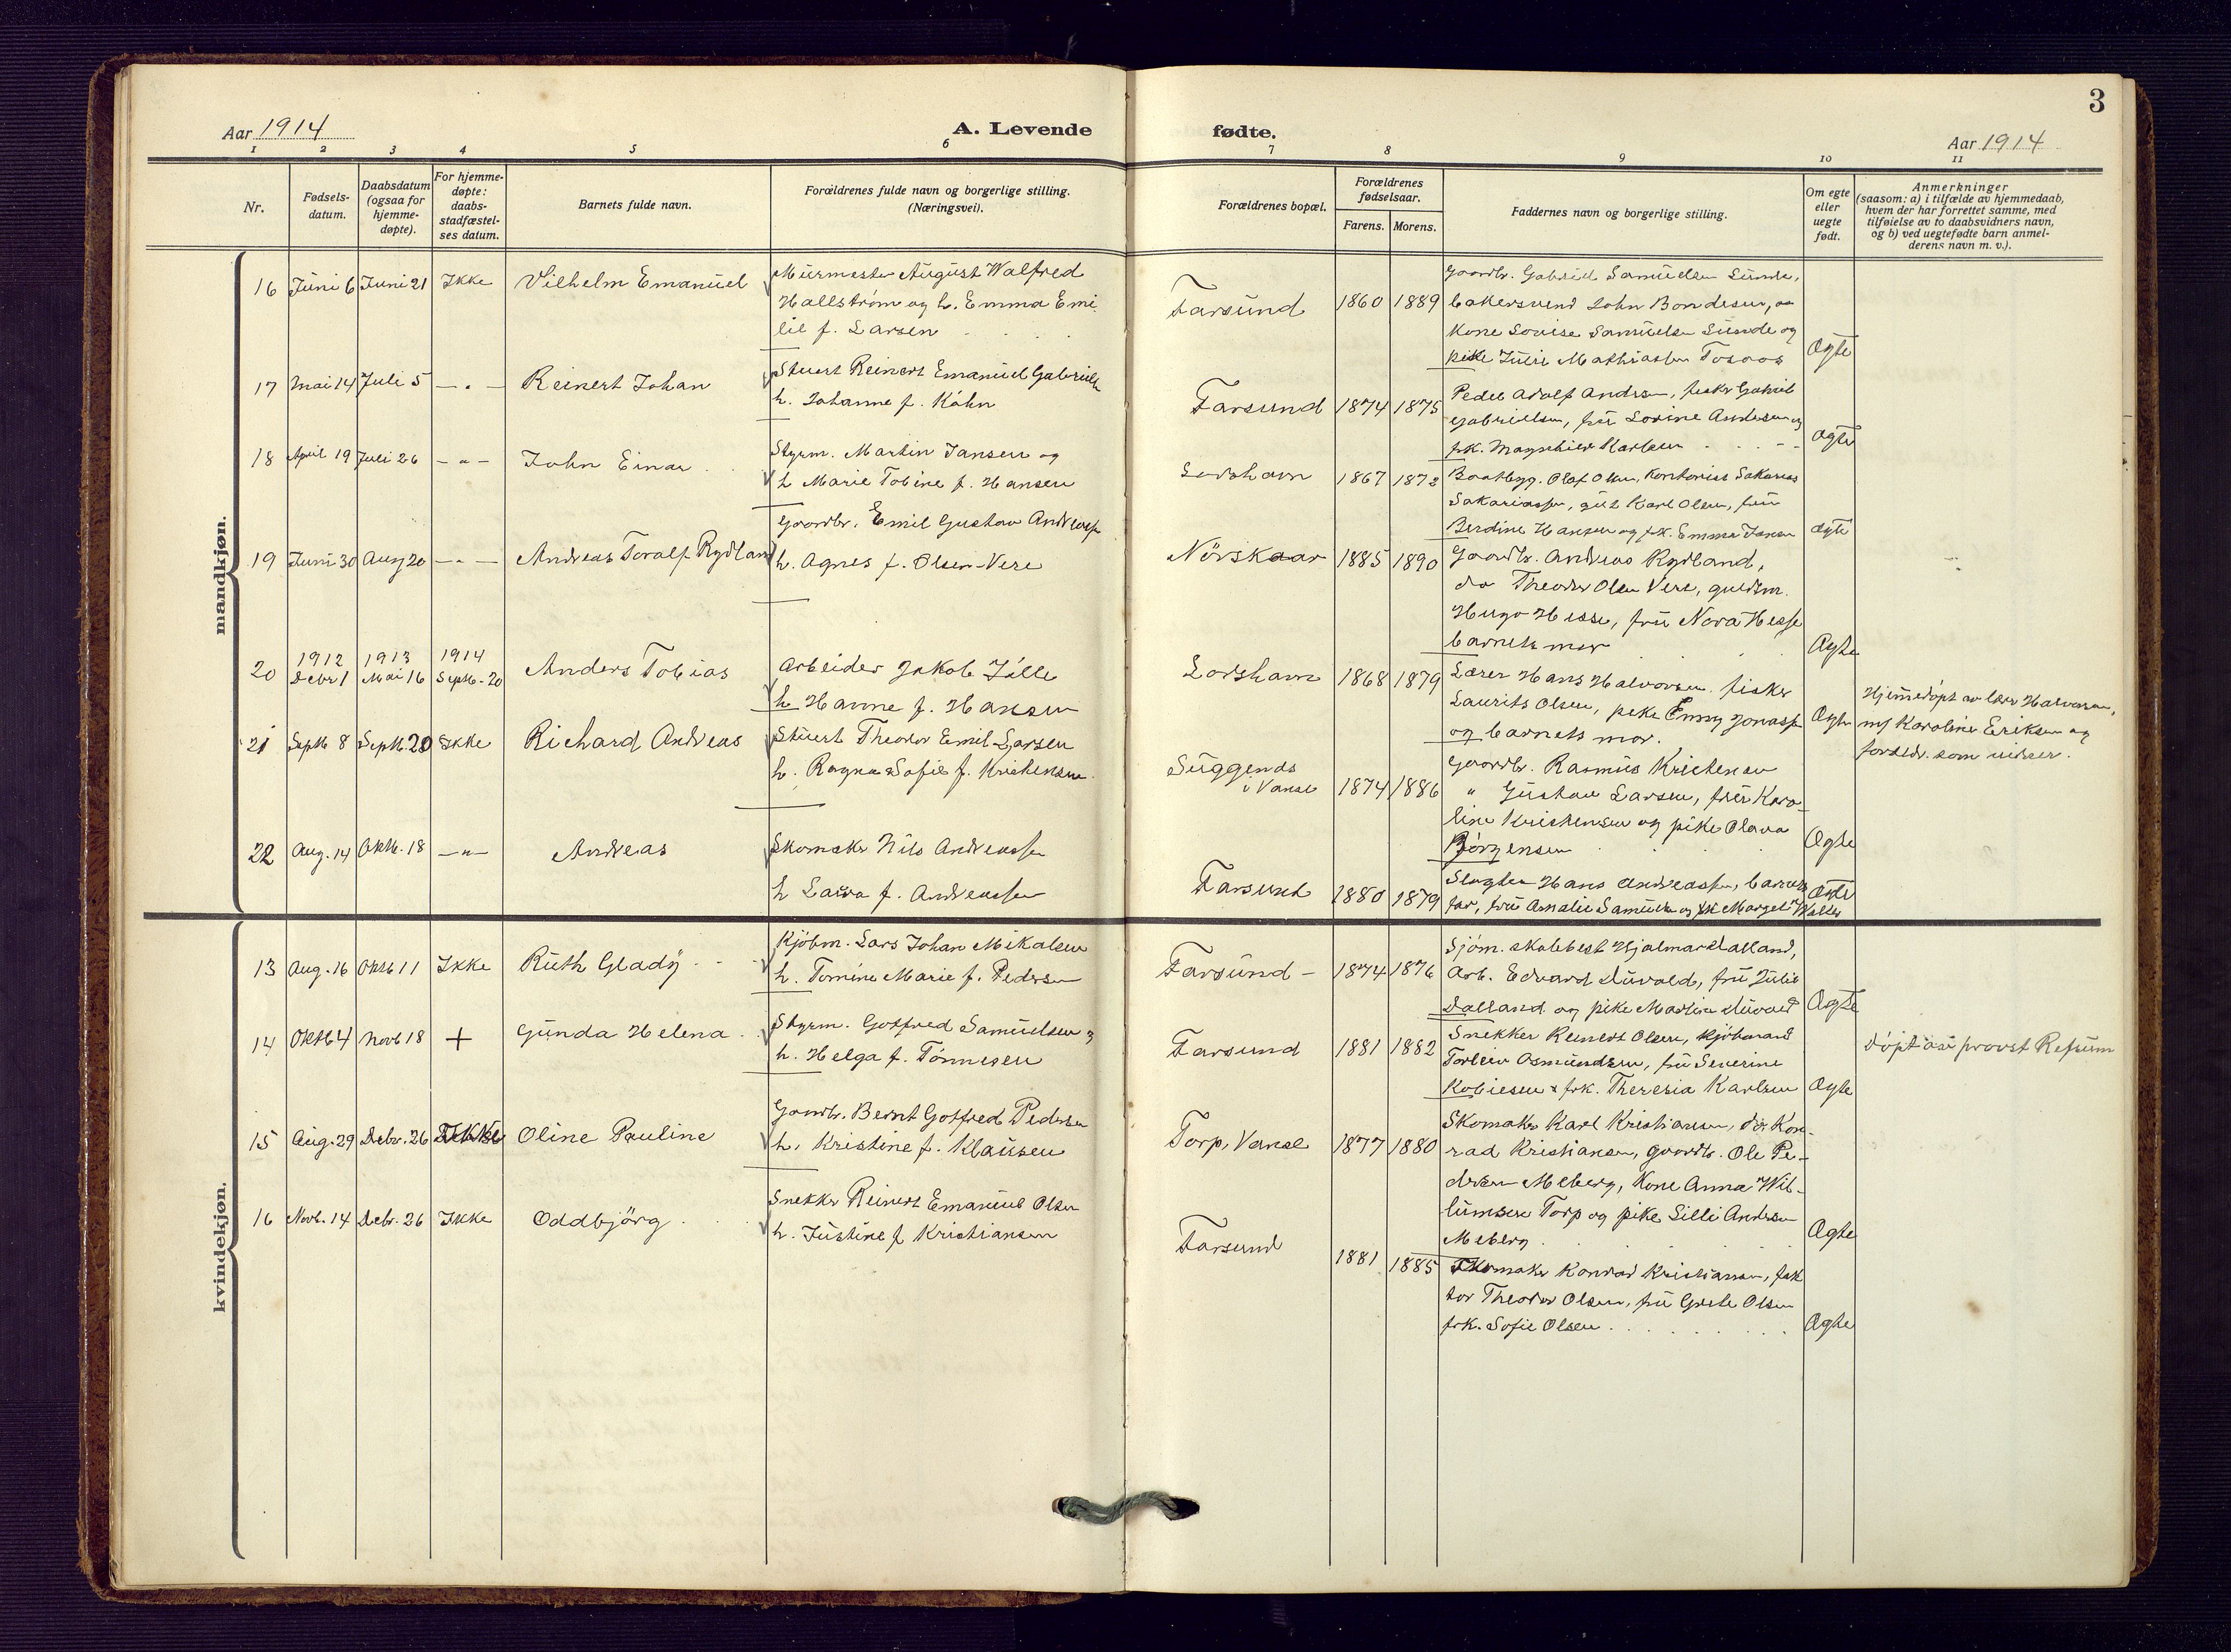 3
Aar 1914
A. Levende
fødte.
Aar 1914
1 2 3 4 5 6 7 8 9 10 11
Nr.
Fødsels-
datum.
Daabsdatum
(ogsaa for
hjemme-
døpte).
For hjemme-
døpte:
daabs-
stadfæstel-
ses datum.
Barnets fulde navn.
Forældrenes fulde navn og borgerlige stilling.
(Næringsvei).
Forældrenes bopæl.
Forældrenes
fødselsaar.
Farens. Morens.
Faddernes navn og borgerlige stilling.
Om egte
eller
uegte
født.
Anmerkninger
(saasom: a) i tilfælde av hjemmedaab,
hvem der har forrettet samme, med
tilføielse av to daabsvidners navn,
og b) ved uegtefødte barn anmel-
derens navn m. v.).
mandkjøn.
16 Juni 6 Juni 21 Ikke Vilhelm Emanuel
Murmester August Walfred
Hallström og h. Emma Emi-
lie f. Larsen
Farsund 1860 1889
Gaardbr. Gabriel Samuelsen Sunde,
bakersvend John Bondesen,
Kone Louise Samuelsen Sunde og
pike Julie Mathiassen
Ægte
17 Mai 14 Juli 5 — " — Reinert Johan
Stuert Reinert Emanuel Gabriels
h. Johanne f. Köhn
Farsund 1874 1875
Peder Adolf Andersen, fisker Gabriel
Gabrielsen, fru Lovine Andersen og
frk. Magnhild Karlsen
Ægte
18 April 19 Juli 26 — " — John Einar
Styrm. Martin Jansen og
h Marie Tobine f. Hansen
Loshavn 1867 1872
Baatbyg. Olaf Olsen, Kontorist Sakarias
Sakariassen, gut Karl Olsen, fru
Berdine Hansen og frk. Emma Jansen
Ægte
19 Juni 30 Aug 20 — " — Andreas Toralf Rydland
Gaardbr. Emil Gustav Andreass
h. Agnes f. Olsen-Vere
Nörskaar 1885 1890
Gaardbr. Andreas Rydland,
do Theodor Olsen Vere, guldsm.
Hugo Hesse, fru Nora Hesse
barnets mor
Ægte
20 1912 Debr 1 1913 Mai 16 1914 Septb. 20 Anders Tobias
Arbeider Jakob Jölle
h Hanne f. Hansen
Loshavn 1868 1879
Lærer Hans Halvorsen, fisker
Laurits Olsen, pike Emmy Jonass
og barnets mor.
Ægte
Hjemedöpt av lærer Halvorsen,
Karoline Eriksen og
som vidner.
21 Septb 8 Septb. 20 Ikke Richard Andreas
Stuert Theodor Emil Larsen
h. Ragna Sofie f. Kristensen
Suggends
i Vanse 1874 1886
Gaardbr. Rasmus Kristensen
" Gustav Larsen, fru Karo-
line Kristensen og pike Olava
Börgensen
Ægte
22 Aug. 14 Oktb. 18 — " — Andreas
Skomaker Nils Andreassen
h Laura f. Andreassen
Farsund 1880 1879
Slagter Hans Andreassen, barnets
far, fru Amalie Samuelsen og frk Margit Walles
Ægte
kvindekjøn.
13 Aug. 16 Oktb 11 Ikke Ruth Glady
Kjöbm. Lars Johan Mikalsen
h. Tomine Marie f. Pedersen
Farsund 1874 1876
Sjöm. skolebest Hjalmar Dalland,
Arb. Edvard Duvold, fru Julie
Dalland og pike Martine Duvold
Ægte
14 Oktb 4 Novb 18 + Gunda Helena
Styrm. Gotfred Samuelsen og
h. Helga f. Tönnesen
Farsund 1881 1882
Snekker Reinert Olsen, Kjöbmand
Torleiv Osmundsen, fru Severine
Kobiesen & frk. Theresia Karlsen
Ægte
Döpt av provst Refsum
15 Aug. 29 Debr. 26 Ikke Oline Pauline
Gaardbr. Bernt Gotfred Pedersen
h. Kristine f. Klausen
Torp, Vanse 1877 1880
Skomaker Karl Kristiansen, do Kon-
rad Kristiansen, gaardbr. Ole Pe-
dersen Meberg, Kone Anna Wil-
lumsen Torp og pike Silli Andersen
Meberg
Ægte
16 Novb. 14 Debr. 26 Ikke Oddbjörg
Snekker Reinert Emanuel Olsen
h. Justine f Kristiansen
Farsund 1881 1885
Skomaker Konrad Kristiansen, fak
tor Theodor Olsen, fru Grete Olsen
frk. Sofie Olsen
Ægte